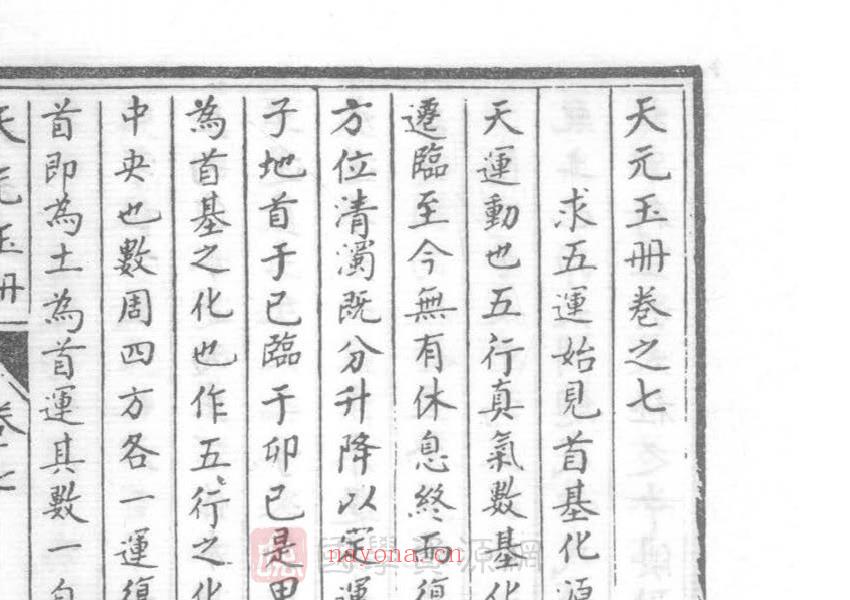 天元玉册卷之七
求五運始見首基化源
天運動也五行真氣數基化
遷臨至今無有休息終而復
方位清濁既分升降以定運
子地首于己臨于卯已是甲
為首基之化也作五行之化
中央也數周四方各一運復
首即為土為首運其數一自
天元玉册
卷七
國學資源網
nayona.cn